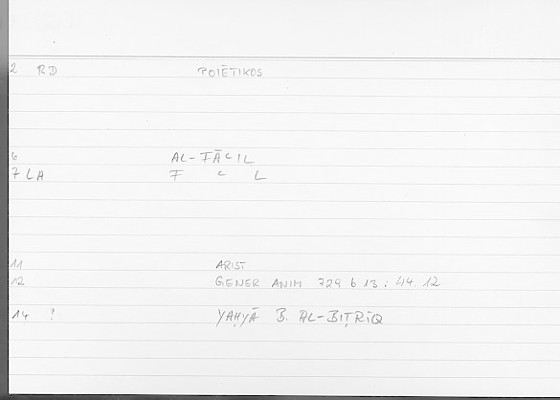 2 RD POIĒTIKOS
6 AL-FĀʿIL
7 LA F ʿ L
11 ARIST
12 GENER ANIM 729 b 13 : 44.12
14 ? YAḤYĀ B. AL-BIṬRĪQ